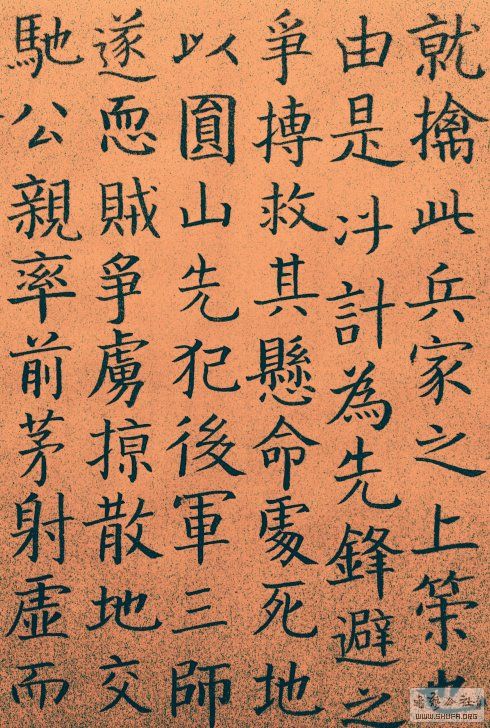 就擒此兵家之上策也
由是計為先鋒避之
爭摶救其懸命處死地
以圓山先犯後軍三師
遂恧賊爭虜掠散地交
馳公親率前茅射虛而
WWW.SHUFA.ORG